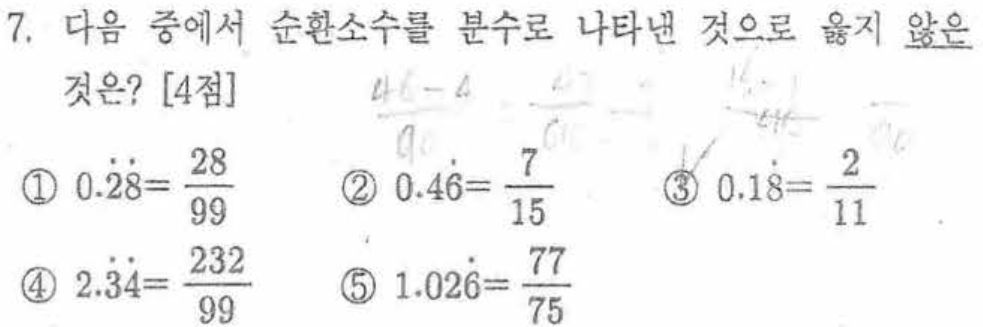 7. 다음 중에서 순환소수를 분수로 나타낸 것으로 옳지 않은
것은? [4점]
① 0.2̇8̇= 28/99 ② 0.46̇= 7/15 ③ 0.18̇= 2/11
④ 2.3̇4̇= 232/99 ⑤ 1.026̇= 77/75